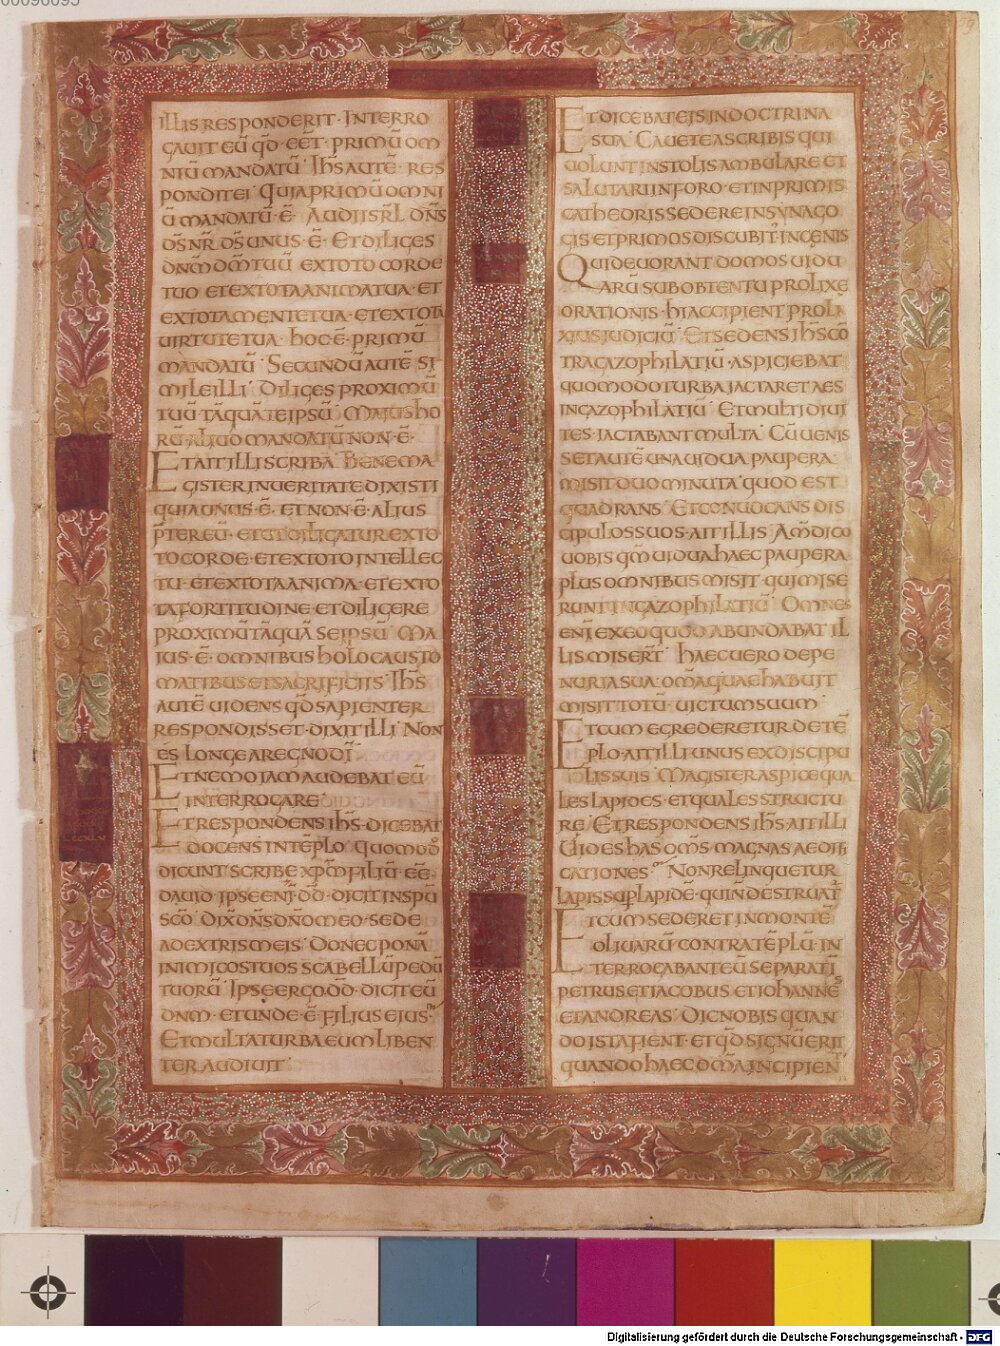 illis responderit · Interro
gavit eū qd̄ eēt · primū om
niū mandatū · Ih̄s autē · res
pondit ei · Quia primū omni
ū mandatū · ē · Audi isrl̄ dn̄s
dս̄ nr̄ · ds̄ unus · ē · Et diliges
dnm̄ dm̄ tuū ex toto corde
tuo et ex tota anima tua · et
ex tota mente tua · et ex tota
uirtute tua · hoc · ē · primū
mandatū · Secundū autē si
mile illi · Diliges proximū
tuū tāquā te ipsū · Maius ho
rū aliud mandatū non · ē ·
Et ait illi scriba · Bene ma
gister in ueritate dixisti
quia unus · ē · et non · ē · alius
p̄ter eū · et ut diligatur ex to
to corde · et ex toto intellec
tu · et ex tota anima · et ex to
ta fortitudine et diligere
proximū tāquā se ipsū · Ma
ius · ē · omnibus holocausto
matibus et sacrificiis · Ih̄s
autē uidens qd̄ sapienter
respondisset · dixit illi · Non
es̄ longe a regno dī ·
Et nemo iam audebat eū
interrogare ·
Et respondens ih̄s · dicebat
docens in tēplo · quomodo
dicunt scribe xp̄m filiū · eē ·
dauid · ipse enī · dd̄ · dicit in spū
scō · Dix̄ dn̄s dn̄o meo · sede
a dextris meis · Donec ponā
inimicos tuos scābellū pedū
tuorū · Ipse ergo · dd̄ · dicit eū
dnm̄ · et unde · ē · filius eius ·
Et multa turba eum liben
ter audiuit ·
Et dicebat eis in doctrina
sua · Cauete a scribis qui
uolunt in stolis ambulare et
salutari in foro · et in primis
cathedris sedere in synago
gis et primos discubit̄ in cenis
Qui deuorant domos uidu
arū sub obtentu prolixe
orationis · hi accipient proli
xius iudiciū · Et sedens ih̄s cō
tra gazophilatiū · aspiciebat
quomodo turba iactaret aes
in gazophilatiū · Et multi diui
tes · iactabant multa · Cū uenis
set autē una uidua paupera
misit duo minuta · quod est
quadrans · Et conuocans dis
cipulos suos · ait illis · Am̄ dico
uobis qm̄ uidua haec paupera
plus omnibus misit qui mise
runt in gazophilatiū · Omnes
enī ex eo quod abundabat il
lis miser̄t · haec uero de pe
nuria sua · om̄a quae habuit
misit totū · uictum suum ·
Et cum egrederetur de tē
plo · ait illi unus ex discipu
lis suis · Magister aspice qua
les lapides · et quales structu
re · Et respondens ih̄s · ait illi
Uides has om̄s · magnas aedifi
cationes · Non relinquetur
lapis sup̄ lapidē · qui n̄ destruat̄
Et cum sederet in monte
oliuarū contra tēplū · in
terrogabant eū separatī
petrus et iacobus et iohannes
et andreas · Dic nobis quan
do ista fient · et qd̄ signū erit
quando haec om̄a incipien
Digitalisierung gefördert durch die Deutsche Forschungsgemeinschaft - DFG